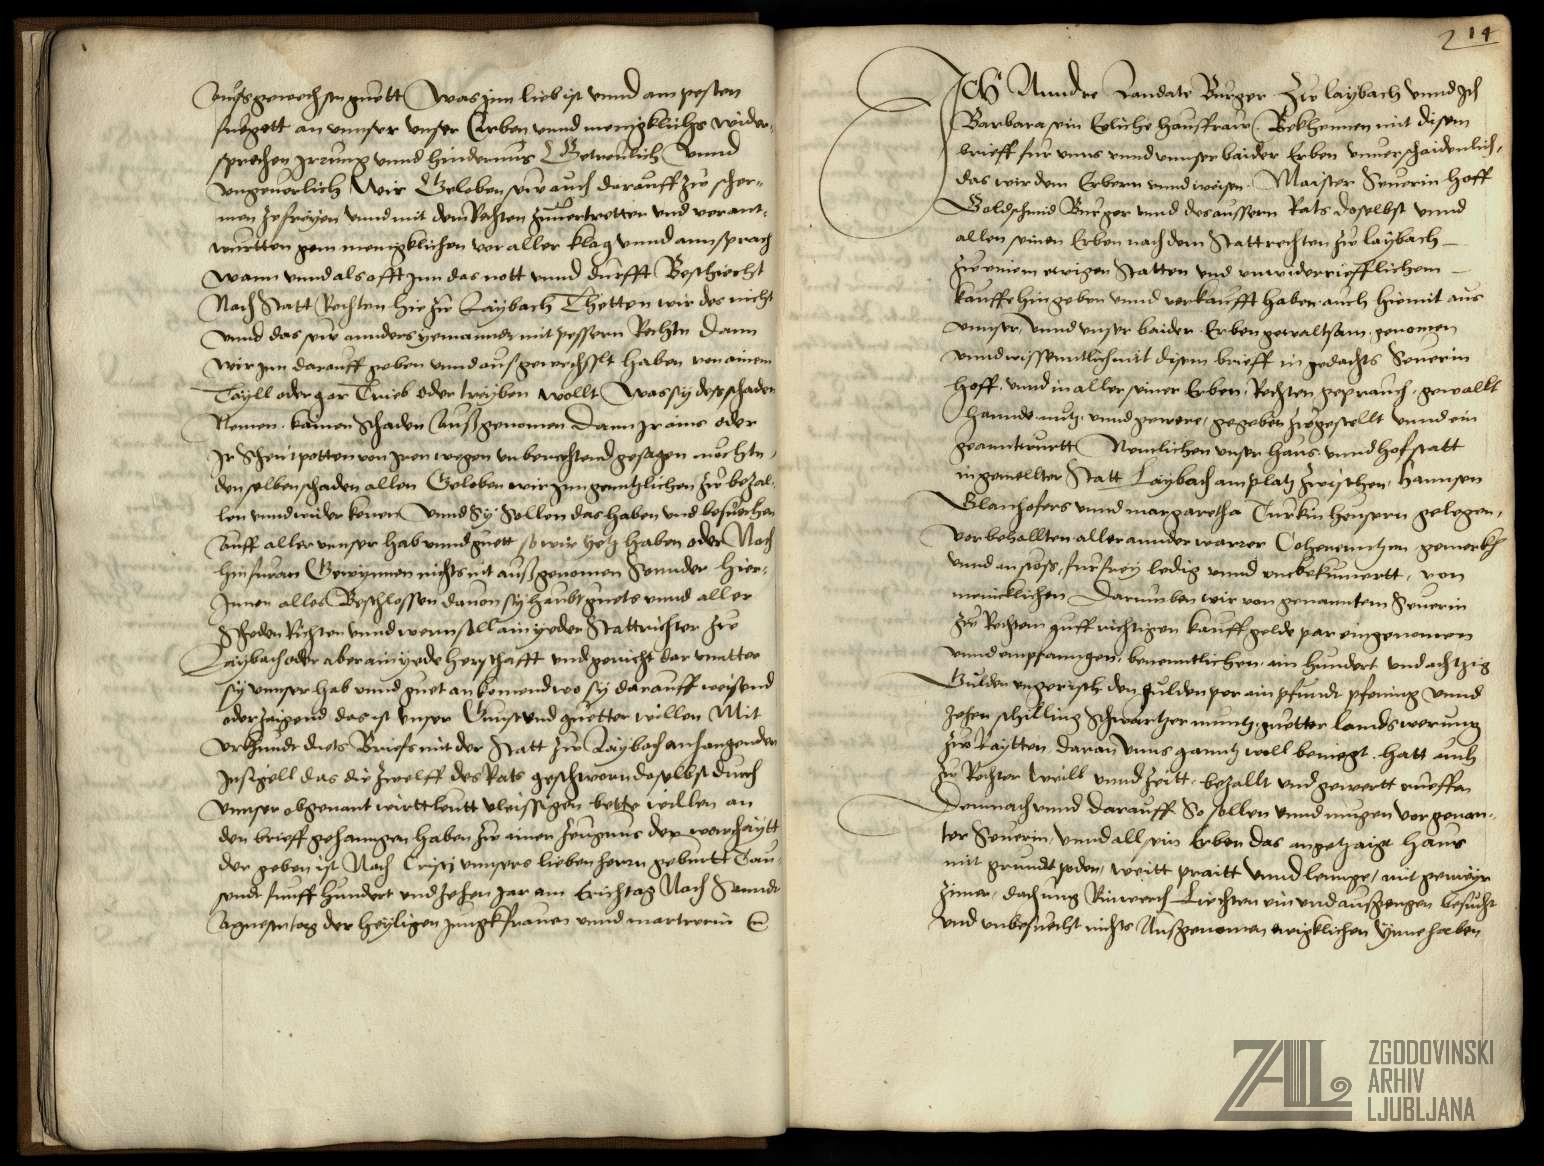 auſsgewechsen guett Was inn lieb ist vnnd am pesten
fuegett an vnnser vnser Erben vnnd menigklichs wider-
sprechen Irrung vnnd hindernus Getreulich vnnd
vngeuerlich Wir Geloben sew auch darauff zw scher-
men zefreyen vnnd mit dem Rechten zuuertretten vnd verant-
wurtten gem menigklichen vor aller klag vnnd annsprach
wann vnnd als offt Inn das nott vnnd durfft Beschiecht
Nach Statt Rechten hie zw Laybach Thetten wir des nicht
vnnd das sew annders yemannds mit pessern Rechtn dann
wir Inn darauff geben vnnd ausgewechsslt haben von ainem
Tayll oder gar Trieb oder treyben wollt Was sy des schaden
Nemen kainen schaden Auſsgenomen Dann Ir ains oder
Ir Schein potten von Iren wegen vnberechtend gesagen mochtn
den selben schaden allen Geloben wir Inn genntzlichen zw bezal-
len vnnd wider keren Vnnd Sy Sollen das haben vnd besuechen
Auff aller vnnser hab vnnd guett so wir yetz haben oder Noch
hinfuran Gewynnen nichts nit auſsgenomen Sonnder hier-
Innen alles Beschlossen dauon sy haubtguets vnnd aller
Scheden Richten vnnd wern soll ain yeder Stattrichter zw
Laybach oder aber ain yede herschafft vnd gericht dar vnntter
sy vnnser hab vnnd guet ankomend wo sy darauff weisend
oder zaigend das ist vnnser Gunst vnd guetter willen Mit
vrkhundt diets Briefs mit der Statt zw Laybach anhangenden
Insigell das die zwelff des Rats geschworn daselbst durch
vnnser obgenant wirttleutt vleissigen bette willen an
den brieff gehanngen haben zw ainer zeugnus der warhaytt
der geben ist Nach Cristi vnnsers lieben herrn geburtt Tau-
sendt funff hundert vnd zehen Jar am Erichtag Nach Sanndt
Agnesen tag der heyligen Jungkfrauen vnnd martrerin
214
Ich Anndre Landate Burger Zw laybach vnnd Ich
Barbara sein Eeliche hausfraw Bekhennen mit disem
brieff fur vnns vnnd vnnser baider Erben vnuerschaidenlich,
das wir dem Erbern vnnd weisen Maister Seuerin Hoff
Goldschmid Burger vnnd des aussern Rats daselbst vnnd
allen seinen Erben nach dem Stattrechten zw laybach
zw ainem ewigen Statten vnd vnwiderriefflichem
kauffe hingeben vnnd verkaufft haben auch hiemit aus
vnnser, vnnd vnser baider Erben gewaltsam genomen
vnnd wissenntlich mit disem brieff in gedachts Seuerin
Hoff vnnd in aller seiner Erben Rechten geprauch gewallt
hannde nutz vnnd gewere, gegeben zwgestellt vnnd ein
geanntwurtt Nemlichen vnser haus vnnd hofstatt
in gemellter Statt Laybach am platz zwischen, Hannsen
Glanhofers vnnd margaretha Turkin heusern gelegen,
vor bezallten aller annder warer gemerkh
vnnd anstoss, fur frey ledig vnnd vnbekumertt, von
menicklichen Darumben wir von genanntem Seuerin
zw Rechtem auffrichtigen kauff gelde par eingenomen
vnnd empfanngen, benenntlichen ain hundert vnd achtzig
Gulden vngerisch den gulden per ain pfundt pfening vnnd
zehen schilling schwartzer muntz guetter landswerung
zw Raytten daran vnns ganntz woll benuegt hatt auch
zu Rechter weill vnnd zeitt bezallt vnd gewertt rueffen
Demnach vnnd darauff So sollen vnnd mugen vor genan-
ter Seuerin vnnd all sein Erben das angetzaigt haus
mit grundt poden, weitt praitt vnnd lennge, mit gemeyr
zimer, dachung Rinwerch Liechten ein vnd auſsgengen besucht
vnd vnbesuecht nichts Auſsgenomen ewigklichen Ynnehaben
ZGODOVINSKI
ARHIV
LJUBLJANA